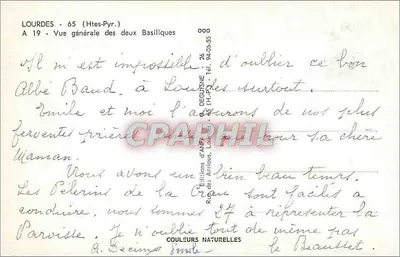 LOURDES - 65 (Htes-Pyr.)
A 19 - Vue générale des deux Basiliques
000
Il m'est impossible d'oublier ce bon
Abbé Baud, à Lourdes surtout.
Emile et moi l'assurons de nos plus
ferventes prières pour sa chère
Maman.
Nous avons un bien beau temps.
Les Pèlerins de la Crau sont faciles à
conduire, nous sommes 27 à représenter la
Paroisse. Je n'oublie tout de même pas
le Beausset.
Emile
CAPHIL
COULEURS NATURELLES